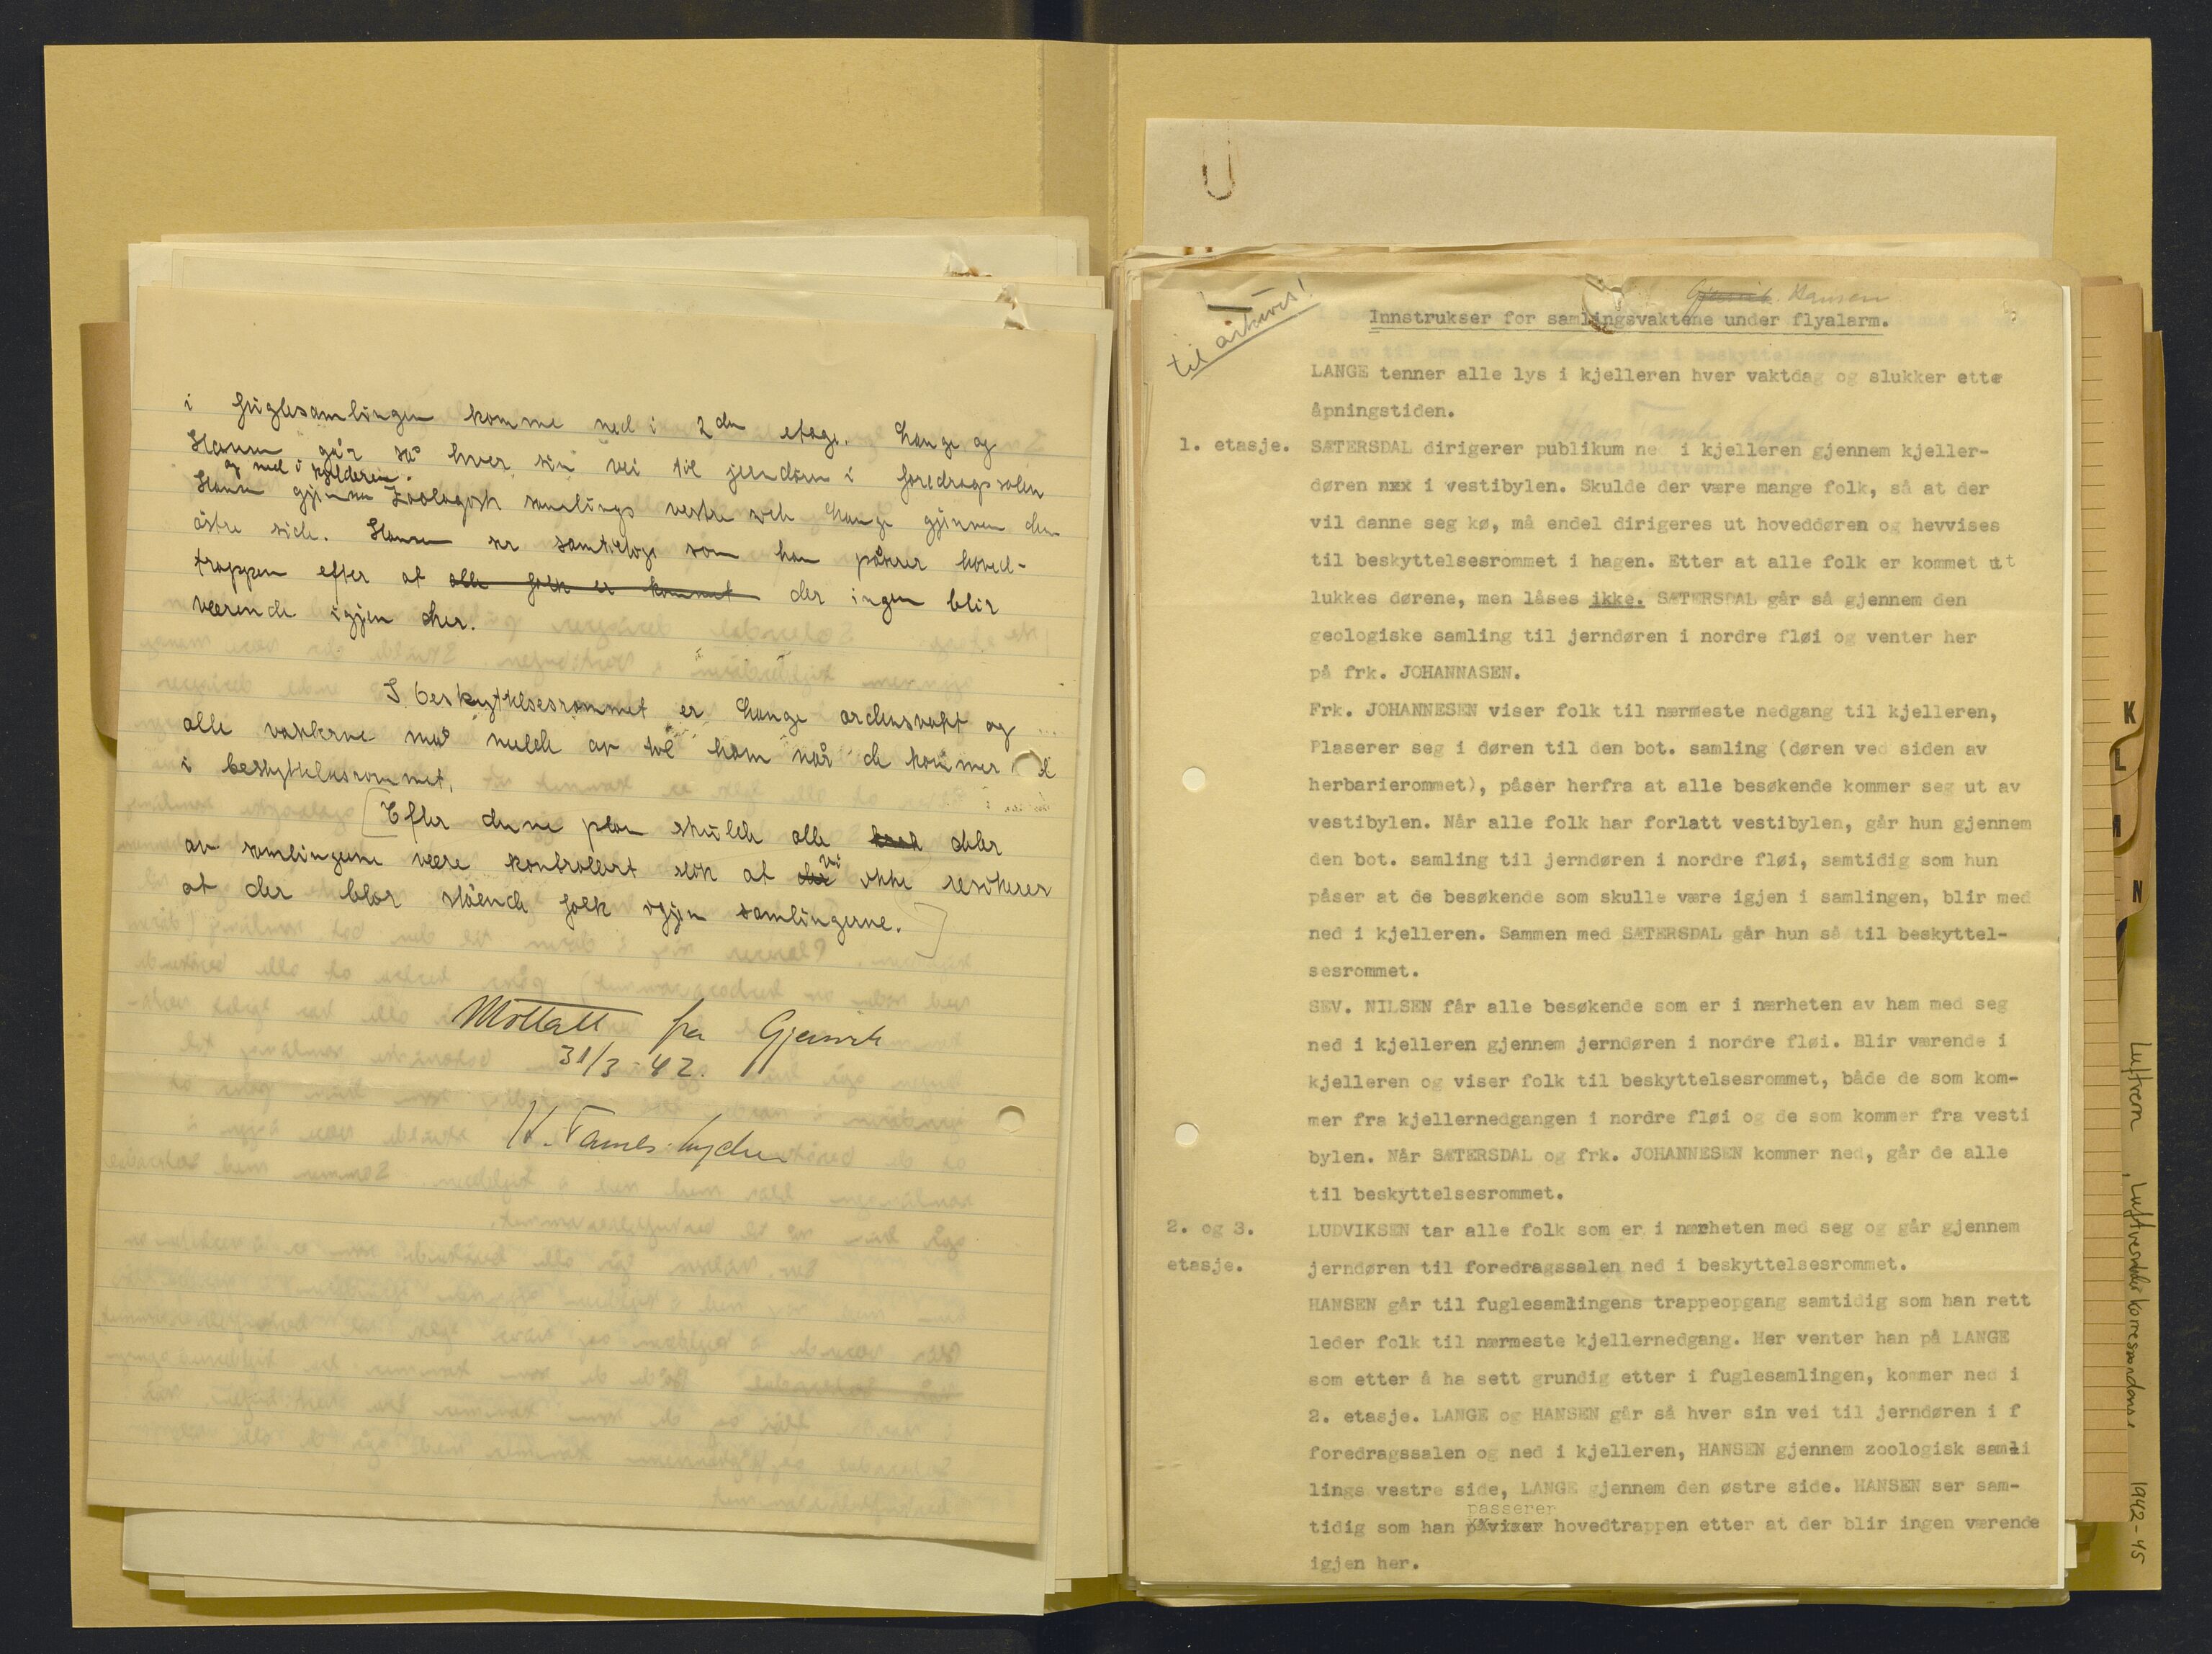 i fuglesamlingen komme ned i 2den etage. Lange og
Hansen går så hver sin vei til jerndøren i foredragssalen
og ned i kjelderen.
Hansen gjennem Zoologisk samlings vestre side Lange gjennem den
østre side. Hansen ser samtidige som han passerer hoved-
trappen efter at alle folk er kommet der ingen blir
værende igjen her.
I beskyttelsesrommet er Lange ordensvakt og
alle vakterne må melde av til ham når de kommer
i beskyttelsesrommet.
[Efter denne plan skulde alle deler
av samlingerne være kontrollert slik at der vi ikke resikerer
at der blir stående folk igjen samlingerne.]
Mottatt fra Gjessvik
31/3-42.
H. Tambs-Lyche
til arkivet!
Gjessvik. Hansen
Innstrukser for samlingsvaktene under flyalarm.
LANGE tenner alle lys i kjelleren hver vaktdag og slukker ette
åpningstiden.
1. etasje. SÆTERSDAL dirigerer publikum ned i kjelleren gjennem kjeller-
døren nxx i vestibylen. Skulde der være mange folk, så at der
vil danne seg kø, må endel dirigeres ut hoveddøren og hevvises
til beskyttelsesrommet i hagen. Etter at alle folk er kommet ut
lukkes dørene, men låses ikke. SÆTERSDAL går så gjennem den
geologiske samling til jerndøren i nordre fløi og venter her
på frk. JOHANNASEN.
Frk. JOHANNESEN viser folk til nærmeste nedgang til kjelleren,
Plaserer seg i døren til den bot. samling (døren ved siden av
herbarierommet), påser herfra at alle besøkende kommer seg ut av
vestibylen. Når alle folk har forlatt vestibylen, går hun gjennem
den bot. samling til jerndøren i nordre fløi, samtidig som hun
påser at de besøkende som skulle være igjen i samlingen, blir med
ned i kjelleren. Sammen med SÆTERSDAL går hun så til beskyttel-
sesrommet.
SEV. NILSEN får alle besøkende som er i nærheten av ham med seg
ned i kjelleren gjennem jerndøren i nordre fløi. Blir værende i
kjelleren og viser folk til beskyttelsesrommet, både de som kom-
mer fra kjellernedgangen i nordre fløi og de som kommer fra vesti
bylen. Når SÆTERSDAL og frk. JOHANNESEN kommer ned, går de alle
til beskyttelsesrommet.
2. og 3. LUDVIKSEN tar alle folk som er i nærheten med seg og går gjennem
etasje. jerndøren til foredragssalen ned i beskyttelsesrommet.
HANSEN går til fuglesamlingens trappeopgang samtidig som han rett
leder folk til nærmeste kjellernedgang. Her venter han på LANGE
som etter å ha sett grundig etter i fuglesamlingen, kommer ned i
2. etasje. LANGE og HANSEN går så hver sin vei til jerndøren i f
foredragssalen og ned i kjelleren, HANSEN gjennem zoologisk samli
lings vestre side, LANGE gjennem den østre side. HANSEN ser sam-
passerer
tidig som han påviser hovedtrappen etter at der blir ingen værende
igjen her.
K
L
N
Luftvern, Luftvernlederkorrespondanse 1942-45